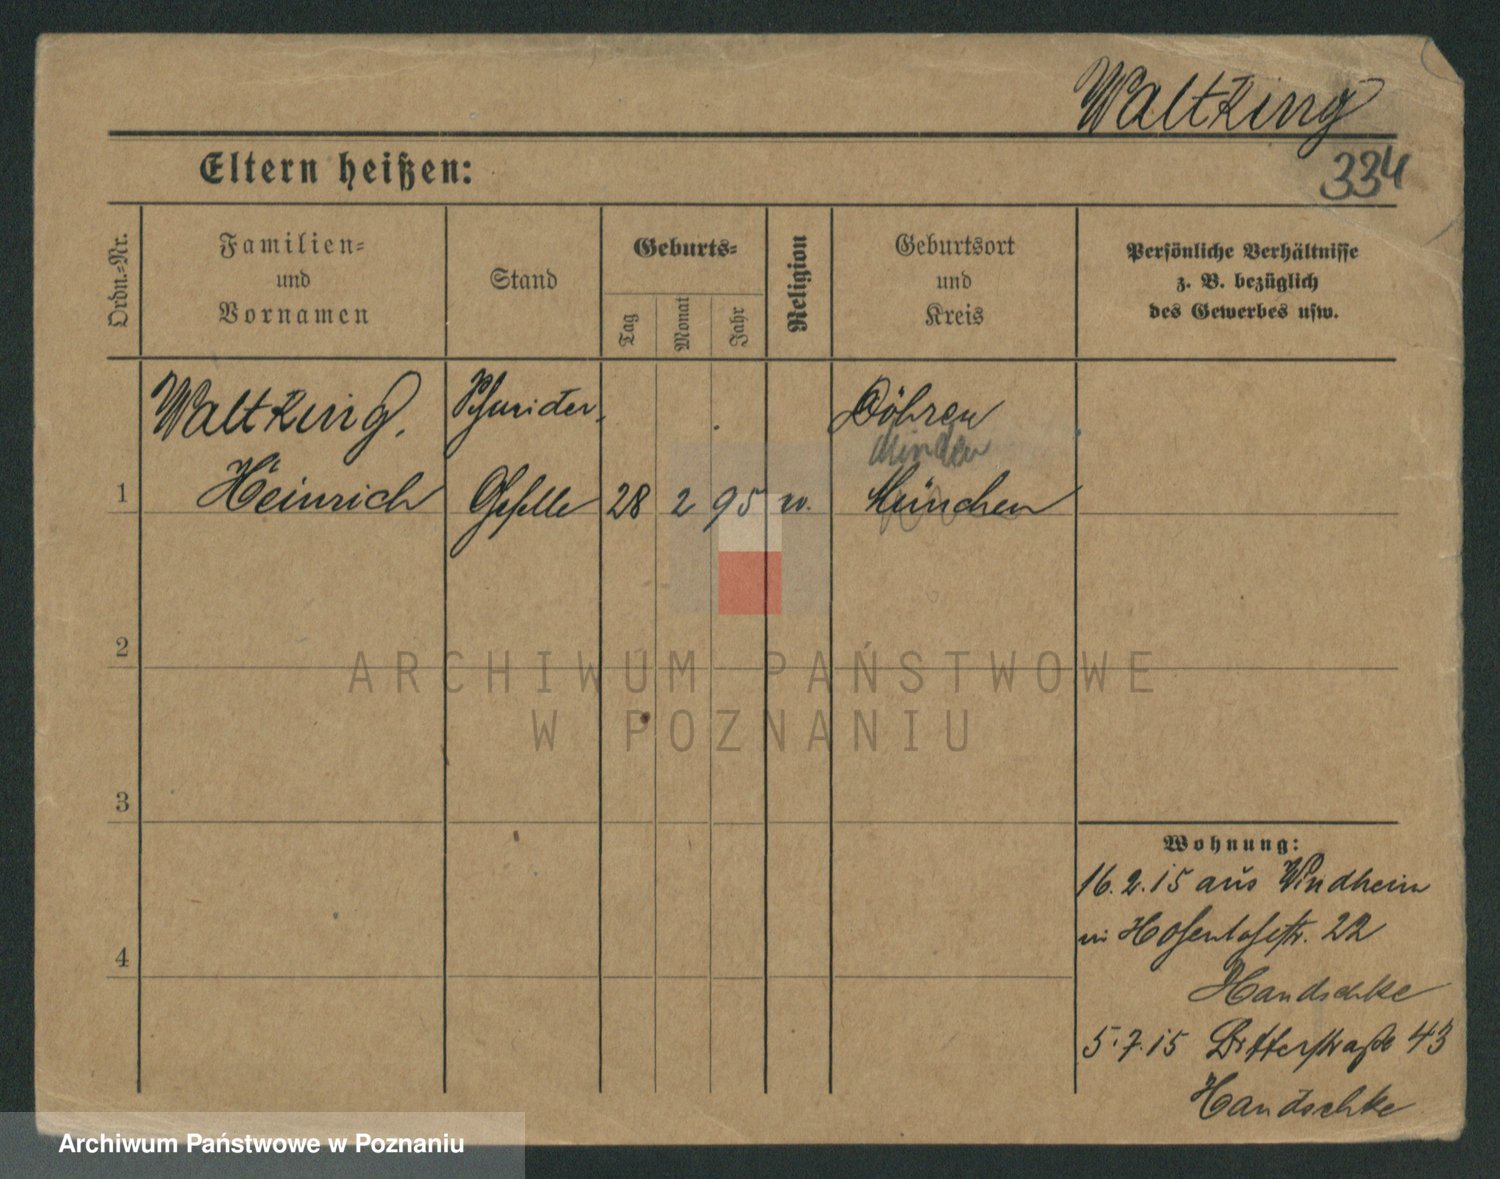 Waltking
334
Eltern heißen:
Ordn.=Nr.
Familien=
und
Vornamen
Stand
Geburts=
Tag
Monat
Jahr
Religion
Geburtsort
und
Kreis
Persönliche Verhältnisse
z. B. bezüglich
des Gewerbes usw.
Waltking,
Schneider
Döhren
Minden
1 Heinrich Geselle 28 2 95 München
2
3
4
ARCHIWUM PAŃSTWOWE
W POZNANIU
Wohnung:
16.2.15 aus Windheim
22
Handschke
5.7.15 43
Handschke
Archiwum Państwowe w Poznaniu